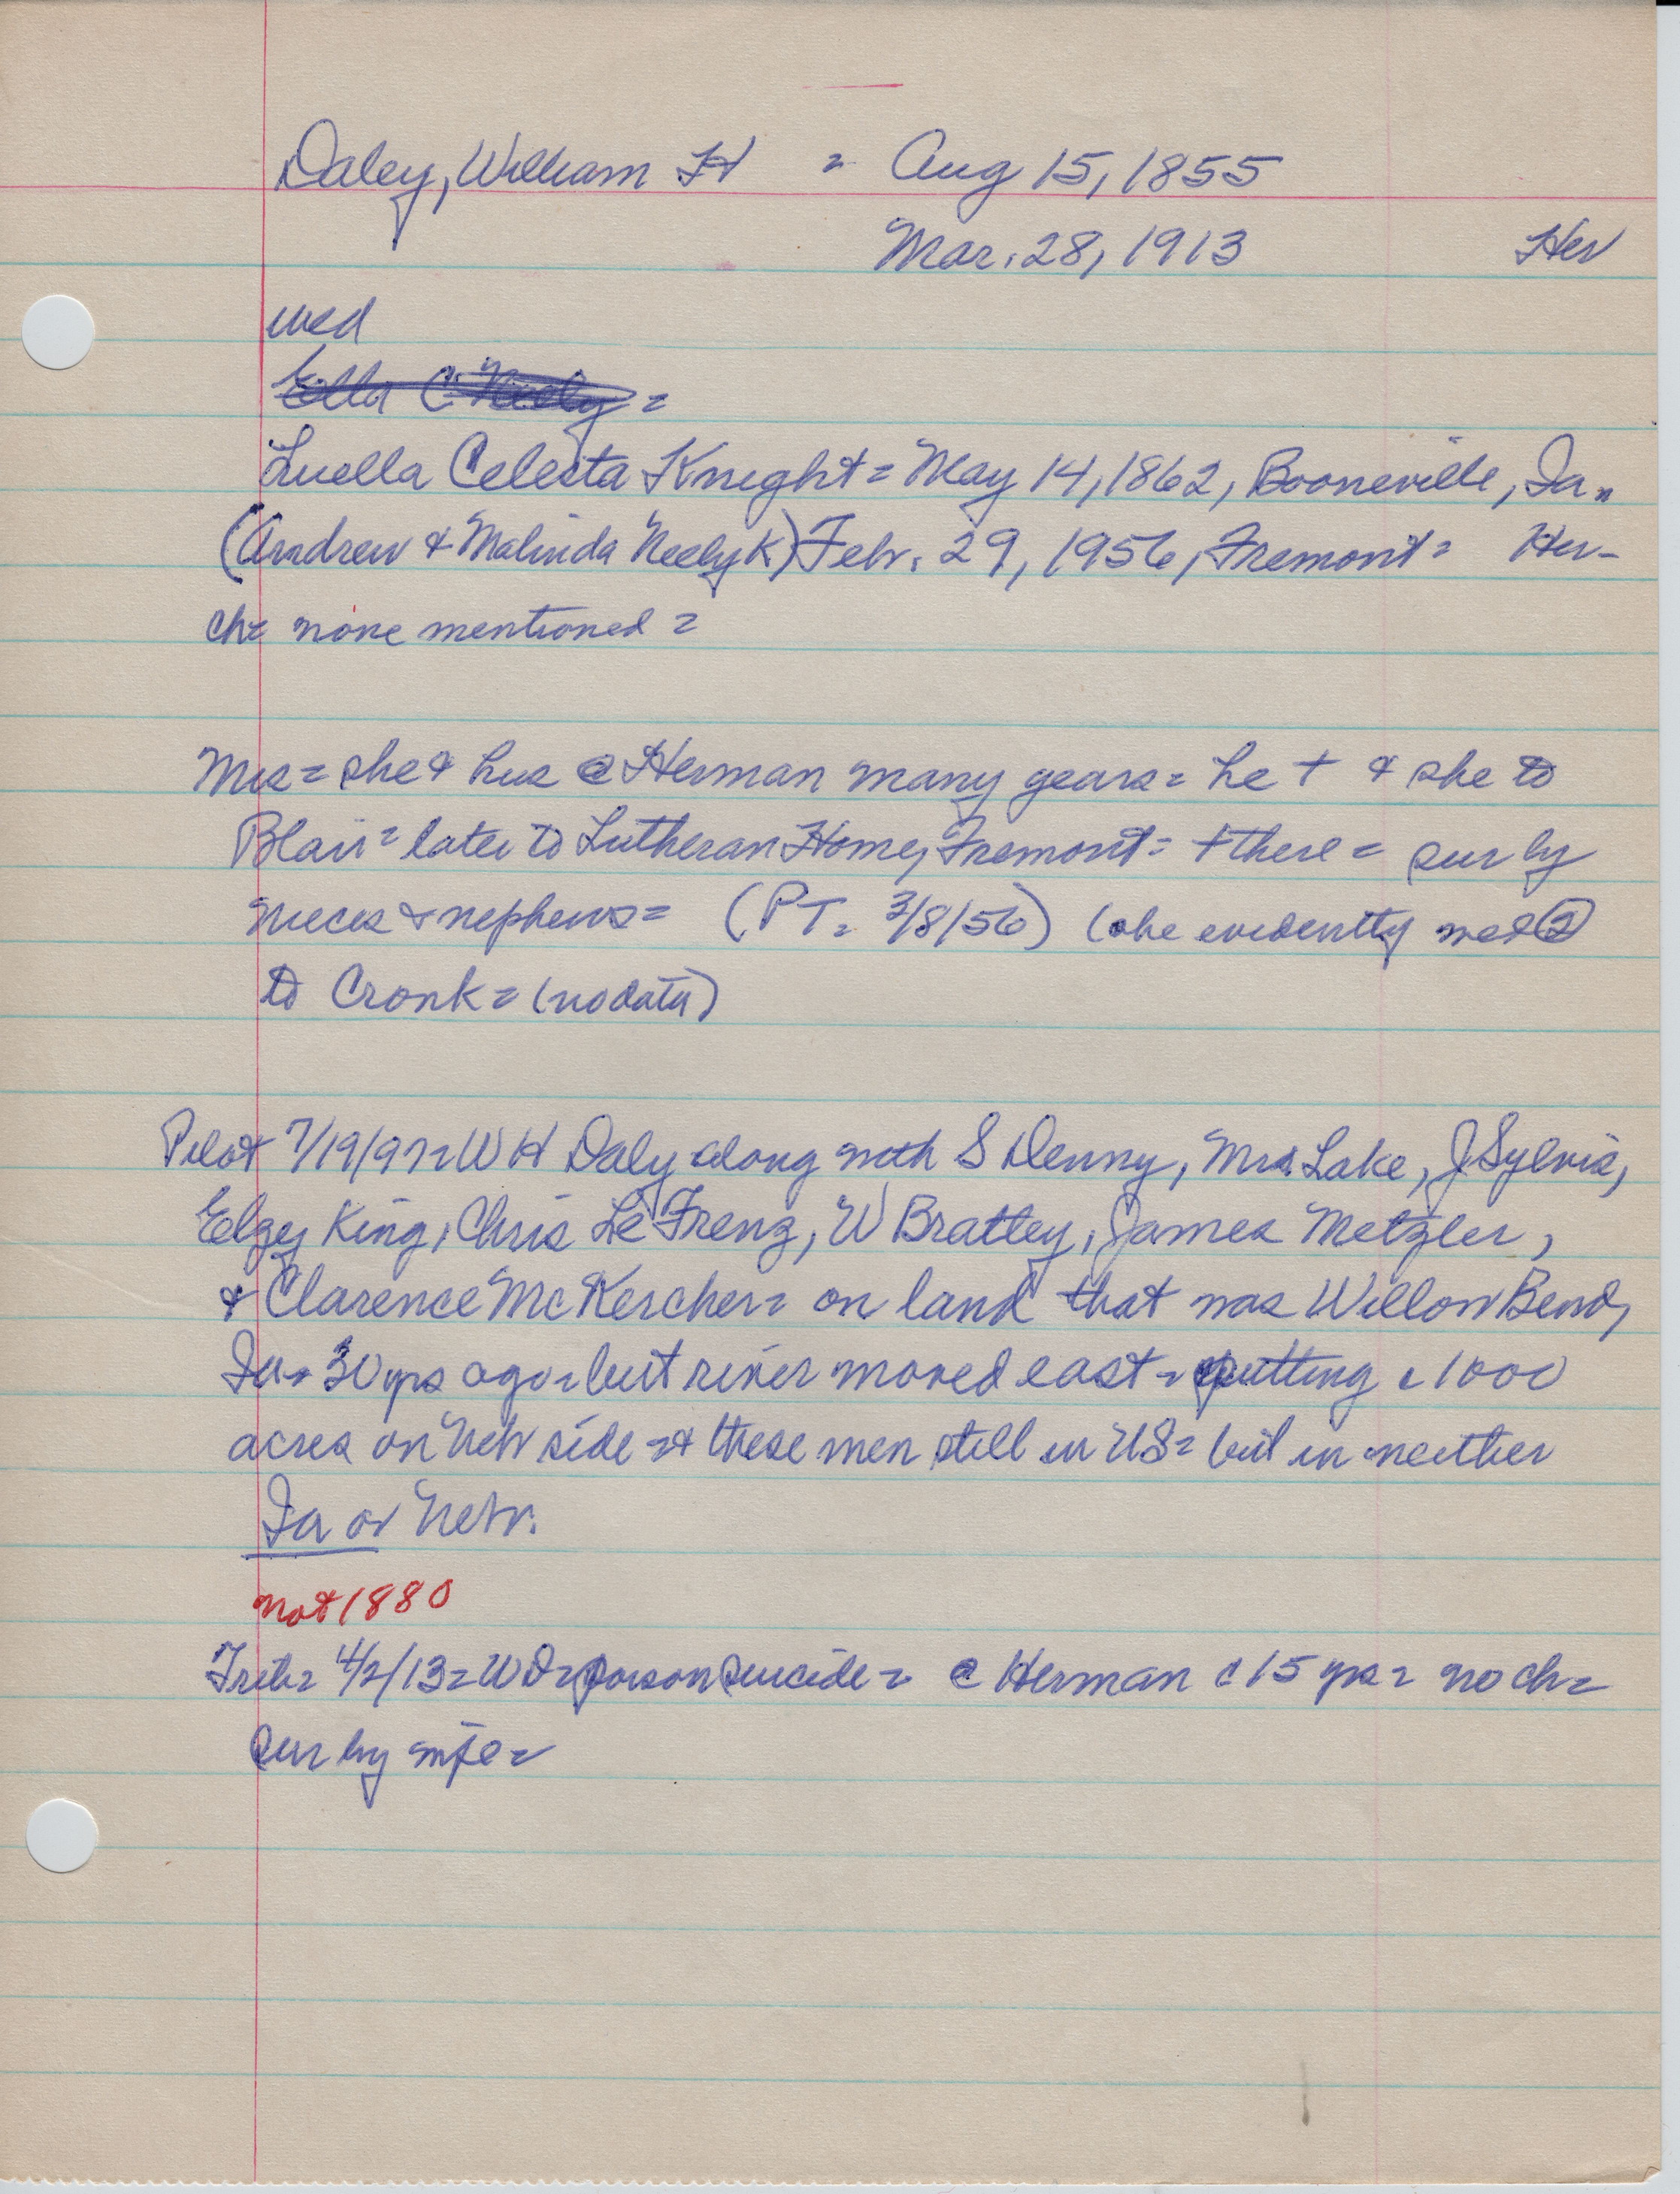 Daley, William H = Aug 15, 1855
Mar. 28, 1913 Her
wed
Ella C. Neely =
Luella Celesta Knight = May 14, 1862, Booneville, Ia =
(Andrew & Malinda Neely K) Febr. 29, 1956, Fremont = Her -
ch = none mentioned =
Mrs = she & hus @ Herman many years = he + & she to
Blair = later to Lutheran Home, Fremont = + there = sur by
nieces & nephews = (PT = 3/8/56) (she evidently wed (2)
to Cronk = (no data)
Pilot 7/19/97 = W H Daly along with S Denny, Mrs. Lake, J. Sylvis,
Elzey King, Chris Le Frenz, W Brattey, James Metzler,
& Clarence McKercher = on land that was Willow Bend,
Ia = 30 yrs ago = but river moved east = putting c 1000
acres on Nebr side = & these men still in US = but in neither
Ia or Nebr.
not 1880
Trib = 4/2/13 = WD = poison suicide = @ Herman c 15 yrs = no ch =
sur by wife =